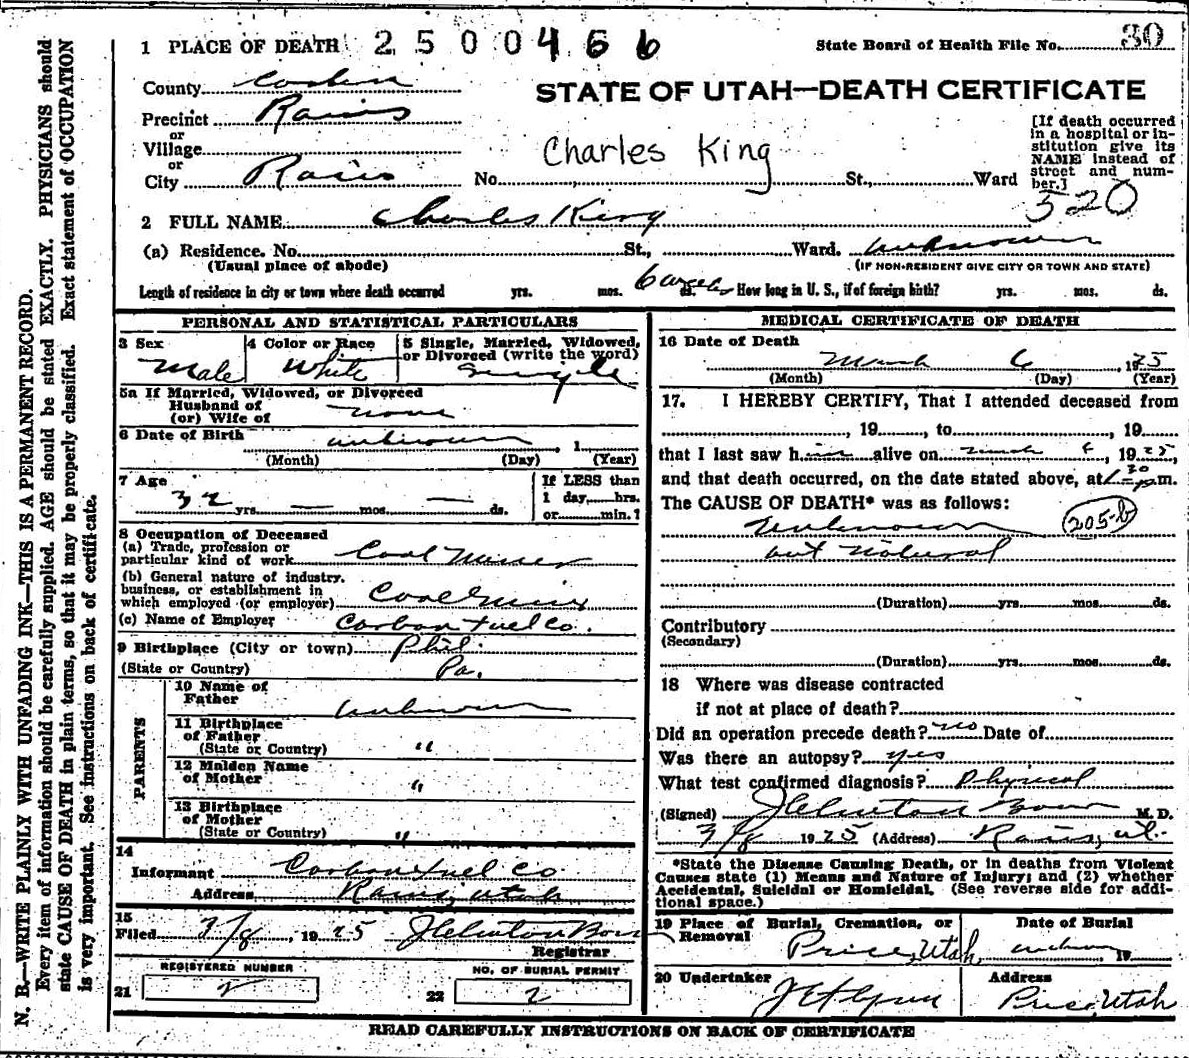 1 PLACE OF DEATH 2500466 State Board of Health File No. 30
County Carbon
STATE OF UTAH—DEATH CERTIFICATE
Precinct Rains
or
Village
or
City Rains No. St., Ward
Charles King
[If death occurred
in a hospital or in-
stitution give its
NAME instead of
street and num-
ber.]
520
2 FULL NAME Charles King
(a) Residence. No. St., Ward. unknown
(Usual place of abode) (IF NON-RESIDENT GIVE CITY OR TOWN AND STATE)
Length of residence in city or town where death occurred yrs. mos. 6 ds. How long in U. S., if of foreign birth? yrs. mos. ds.
PERSONAL AND STATISTICAL PARTICULARS
3 Sex 4 Color or Race 5 Single, Married, Widowed,
or Divorced (write the word)
Male White Single
5a If Married, Widowed, or Divorced
Husband of
(or) Wife of None
6 Date of Birth unknown , 1
(Month) (Day) (Year)
7 Age If LESS than
32 yrs. — mos. — ds. 1 day, hrs.
or min.?
8 Occupation of Deceased
(a) Trade, profession or
particular kind of work Coal Miner
(b) General nature of industry,
business, or establishment in
which employed (or employer) Coal Mine
(c) Name of Employer Carbon Fuel Co.
9 Birthplace (City or town) Phil.
(State or Country) Pa.
PARENTS
10 Name of
Father unknown
11 Birthplace
of Father
(State or Country) "
12 Maiden Name
of Mother "
13 Birthplace
of Mother
(State or Country) "
14
Informant Carbon Fuel Co
Address Rains, Utah
15
Filed 3/8, 1925 J Clinton
Registrar
REGISTERED NUMBER NO. OF BURIAL PERMIT
21 2 22 2
MEDICAL CERTIFICATE OF DEATH
16 Date of Death
March 6, 1925
(Month) (Day) (Year)
17. I HEREBY CERTIFY, That I attended deceased from
, 19 , to , 19
that I last saw him alive on March 6, 1925
and that death occurred, on the date stated above, at 1 30 p.m.
The CAUSE OF DEATH* was as follows:
Unknown 205-b
but Natural
(Duration) yrs. mos. ds.
Contributory
(Secondary)
(Duration) yrs. mos. ds.
18 Where was disease contracted
if not at place of death?
Did an operation precede death? no Date of
Was there an autopsy? yes
What test confirmed diagnosis? Physical
(Signed) J Clinton M. D.
3/8 1925 (Address) Rains, Ut.
*State the Disease Causing Death, or in deaths from Violent
Causes state (1) Means and Nature of Injury; and (2) whether
Accidental, Suicidal or Homicidal. (See reverse side for addi-
tional space.)
19 Place of Burial, Cremation, or Date of Burial
Removal Price, Utah, unknown 19
20 Undertaker Address
J E Flynn Price, Utah
READ CAREFULLY INSTRUCTIONS ON BACK OF CERTIFICATE
N. B.—WRITE PLAINLY WITH UNFADING INK—THIS IS A PERMANENT RECORD.
Every item of information should be carefully supplied. AGE should be stated EXACTLY. PHYSICIANS should
state CAUSE OF DEATH in plain terms, so that it may be properly classified. Exact statement of OCCUPATION
is very important. See instructions on back of certificate.